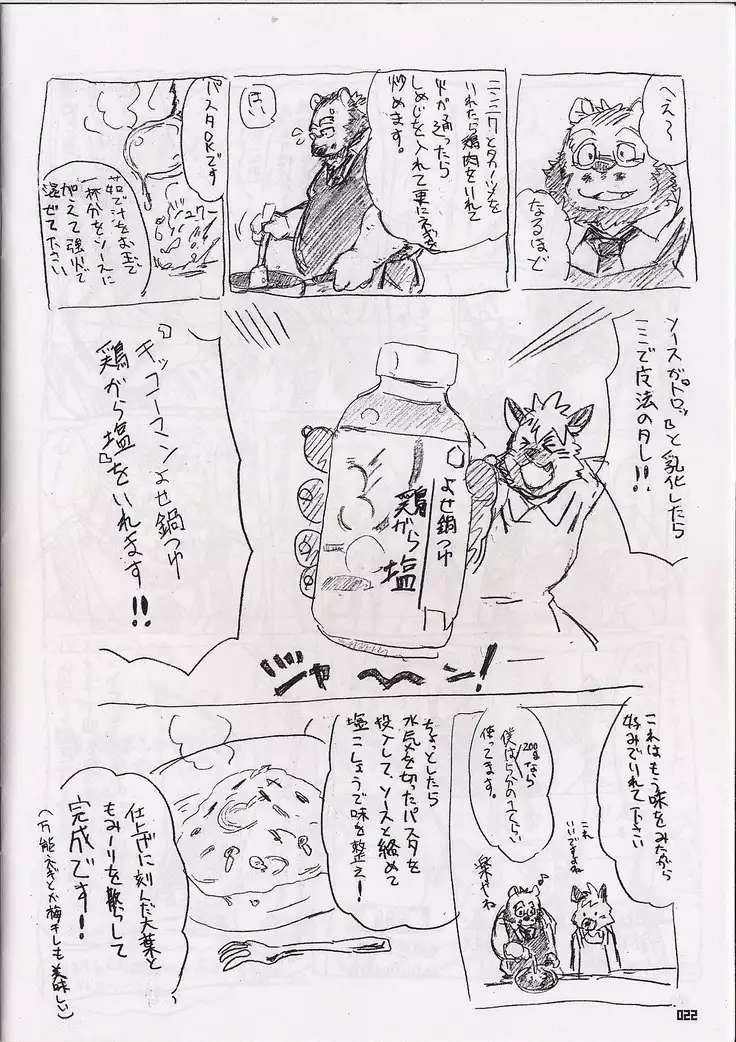 へえ〜
なるほど
ニンニクとタカノツメを
いれたら鶏肉をいれて
火が通ったら
しめじを入れて更に
炒めます。
はい
パスタOKです
茹で汁をお玉で
一杯分をソースに
加えて強火で
混ぜて下さい
ソースが『ドロッ』と乳化したら
ここで魔法のタレ!!
よせ鍋つゆ
鶏がら塩
『キッコーマンよせ鍋つゆ
鶏がら塩』をいれます!!
ジャ〜〜ン!
これはもう味をみながら
好みでいれて下さい
200gなら
僕は
使ってます。
これ
いいですよね
楽やね
ちょっとしたら
水気を切ったパスタを
投入して、ソースと絡めて
塩こしょうで味を整え!
仕上げに刻んだ大葉と
もみのりを散らして
完成です!
(万能ネギとか梅干しも美味しい)
022